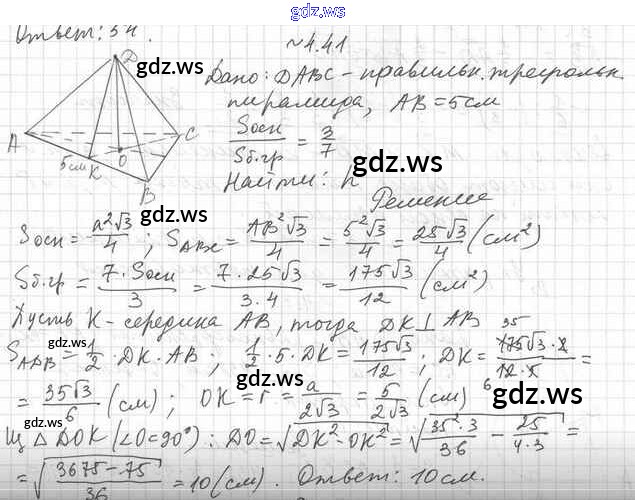 gdz.ws
Ответ: 54.
№ 4.41
D
gdz.ws
Дано: DABC - правильн. треугольн.
пирамида, AB = 5 см
A
C
Sосн / Sб.гр = 3/7
gdz.ws
5 см K
O
B
Найти: h
gdz.ws
Решение
Sосн = a²√3/4; S_ABC = AB²√3/4 = 5²√3/4 = 25√3/4 (см²)
Sб.гр = 7·Sосн/3 = 7·25√3/3·4 = 175√3/12 (см²)
Пусть K - середина AB, тогда DK ⊥ AB
S_ADB = 1/2 · DK · AB; 1/2 · 5 · DK = 175√3/12; DK = 175√3·2/12·5 =
35
6
gdz.ws
gdz.ws
= 35√3/6 (см); OK = r = a/2√3 = 5/2√3 (см)
gdz.ws
Из △DOK (∠O=90°): DO = √DK²-OK² = √35²·3/36 - 25/4·3 =
= √3675-75/36 = 10 (см). Ответ: 10 см.
gdz.ws